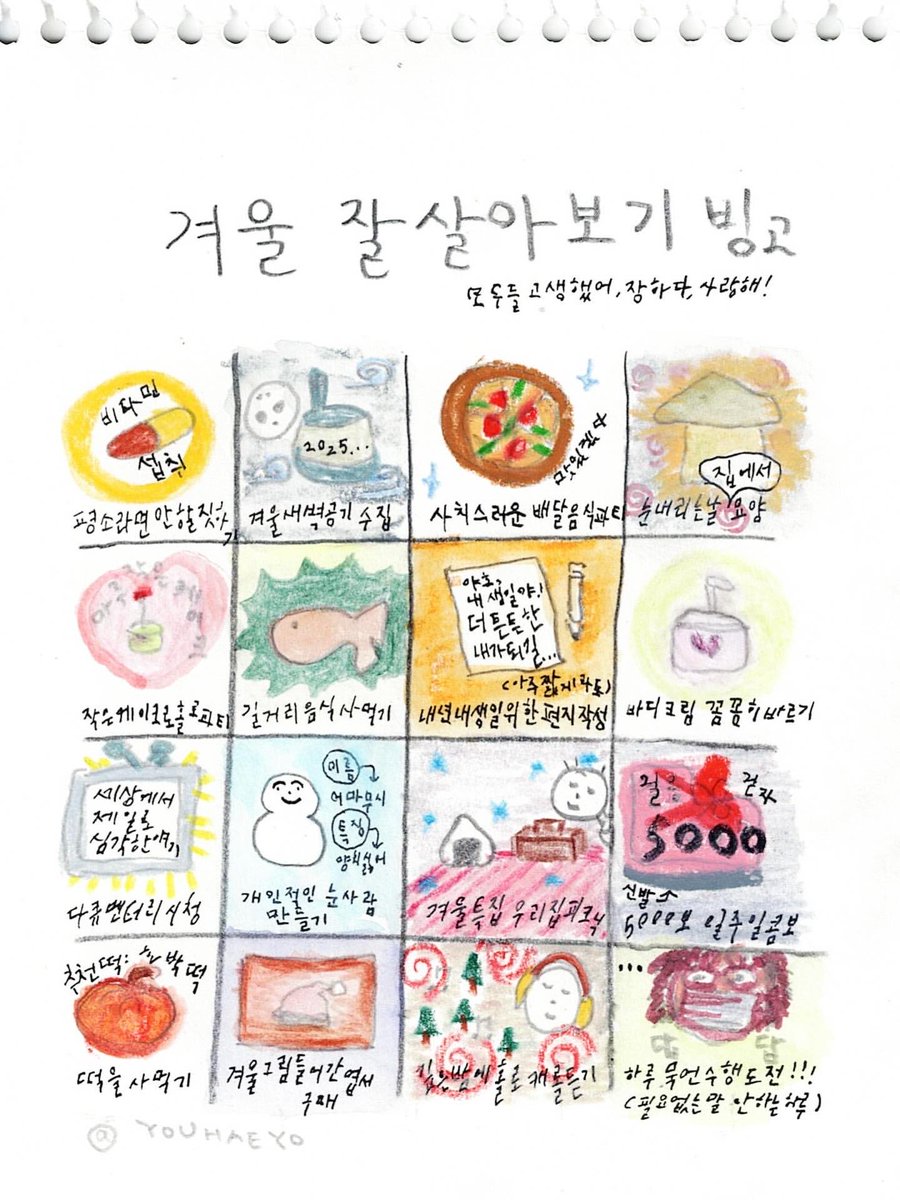 겨울 잘살아보기 빙고
모두들 고생했어, 장하다, 사랑해!
비타민
섭취
평소라면 안할짓하기
2025...
겨울새벽공기 수집
맛있겠다
사치스러운 배달음식파티
집에서
눈내리는날 요양
아주작은케이크
작은케이크로홀로파티
길거리음식사먹기
야호,
내생일야!
더 튼튼한
내가되길...
(아주짧게라도)
내년내생일위한편지작성
바디크림 꼼꼼히바르기
세상에서
제일로
심각한얘기
다큐멘터리시청
이름
어마무시
특징
양치싫어
개인적인눈사람
만들기
겨울특집 우리집피크닉
걸음 걷자
5000
신발 속
5000보 일주일콤보
추천떡: 호박떡
떡을사먹기
겨울그림들어간엽서
구매
깊은밤에홀로캐롤듣기
...
답 답
하루 묵언수행도전!!!
(필요없는말 안하는하루)
@YOUHAEYO